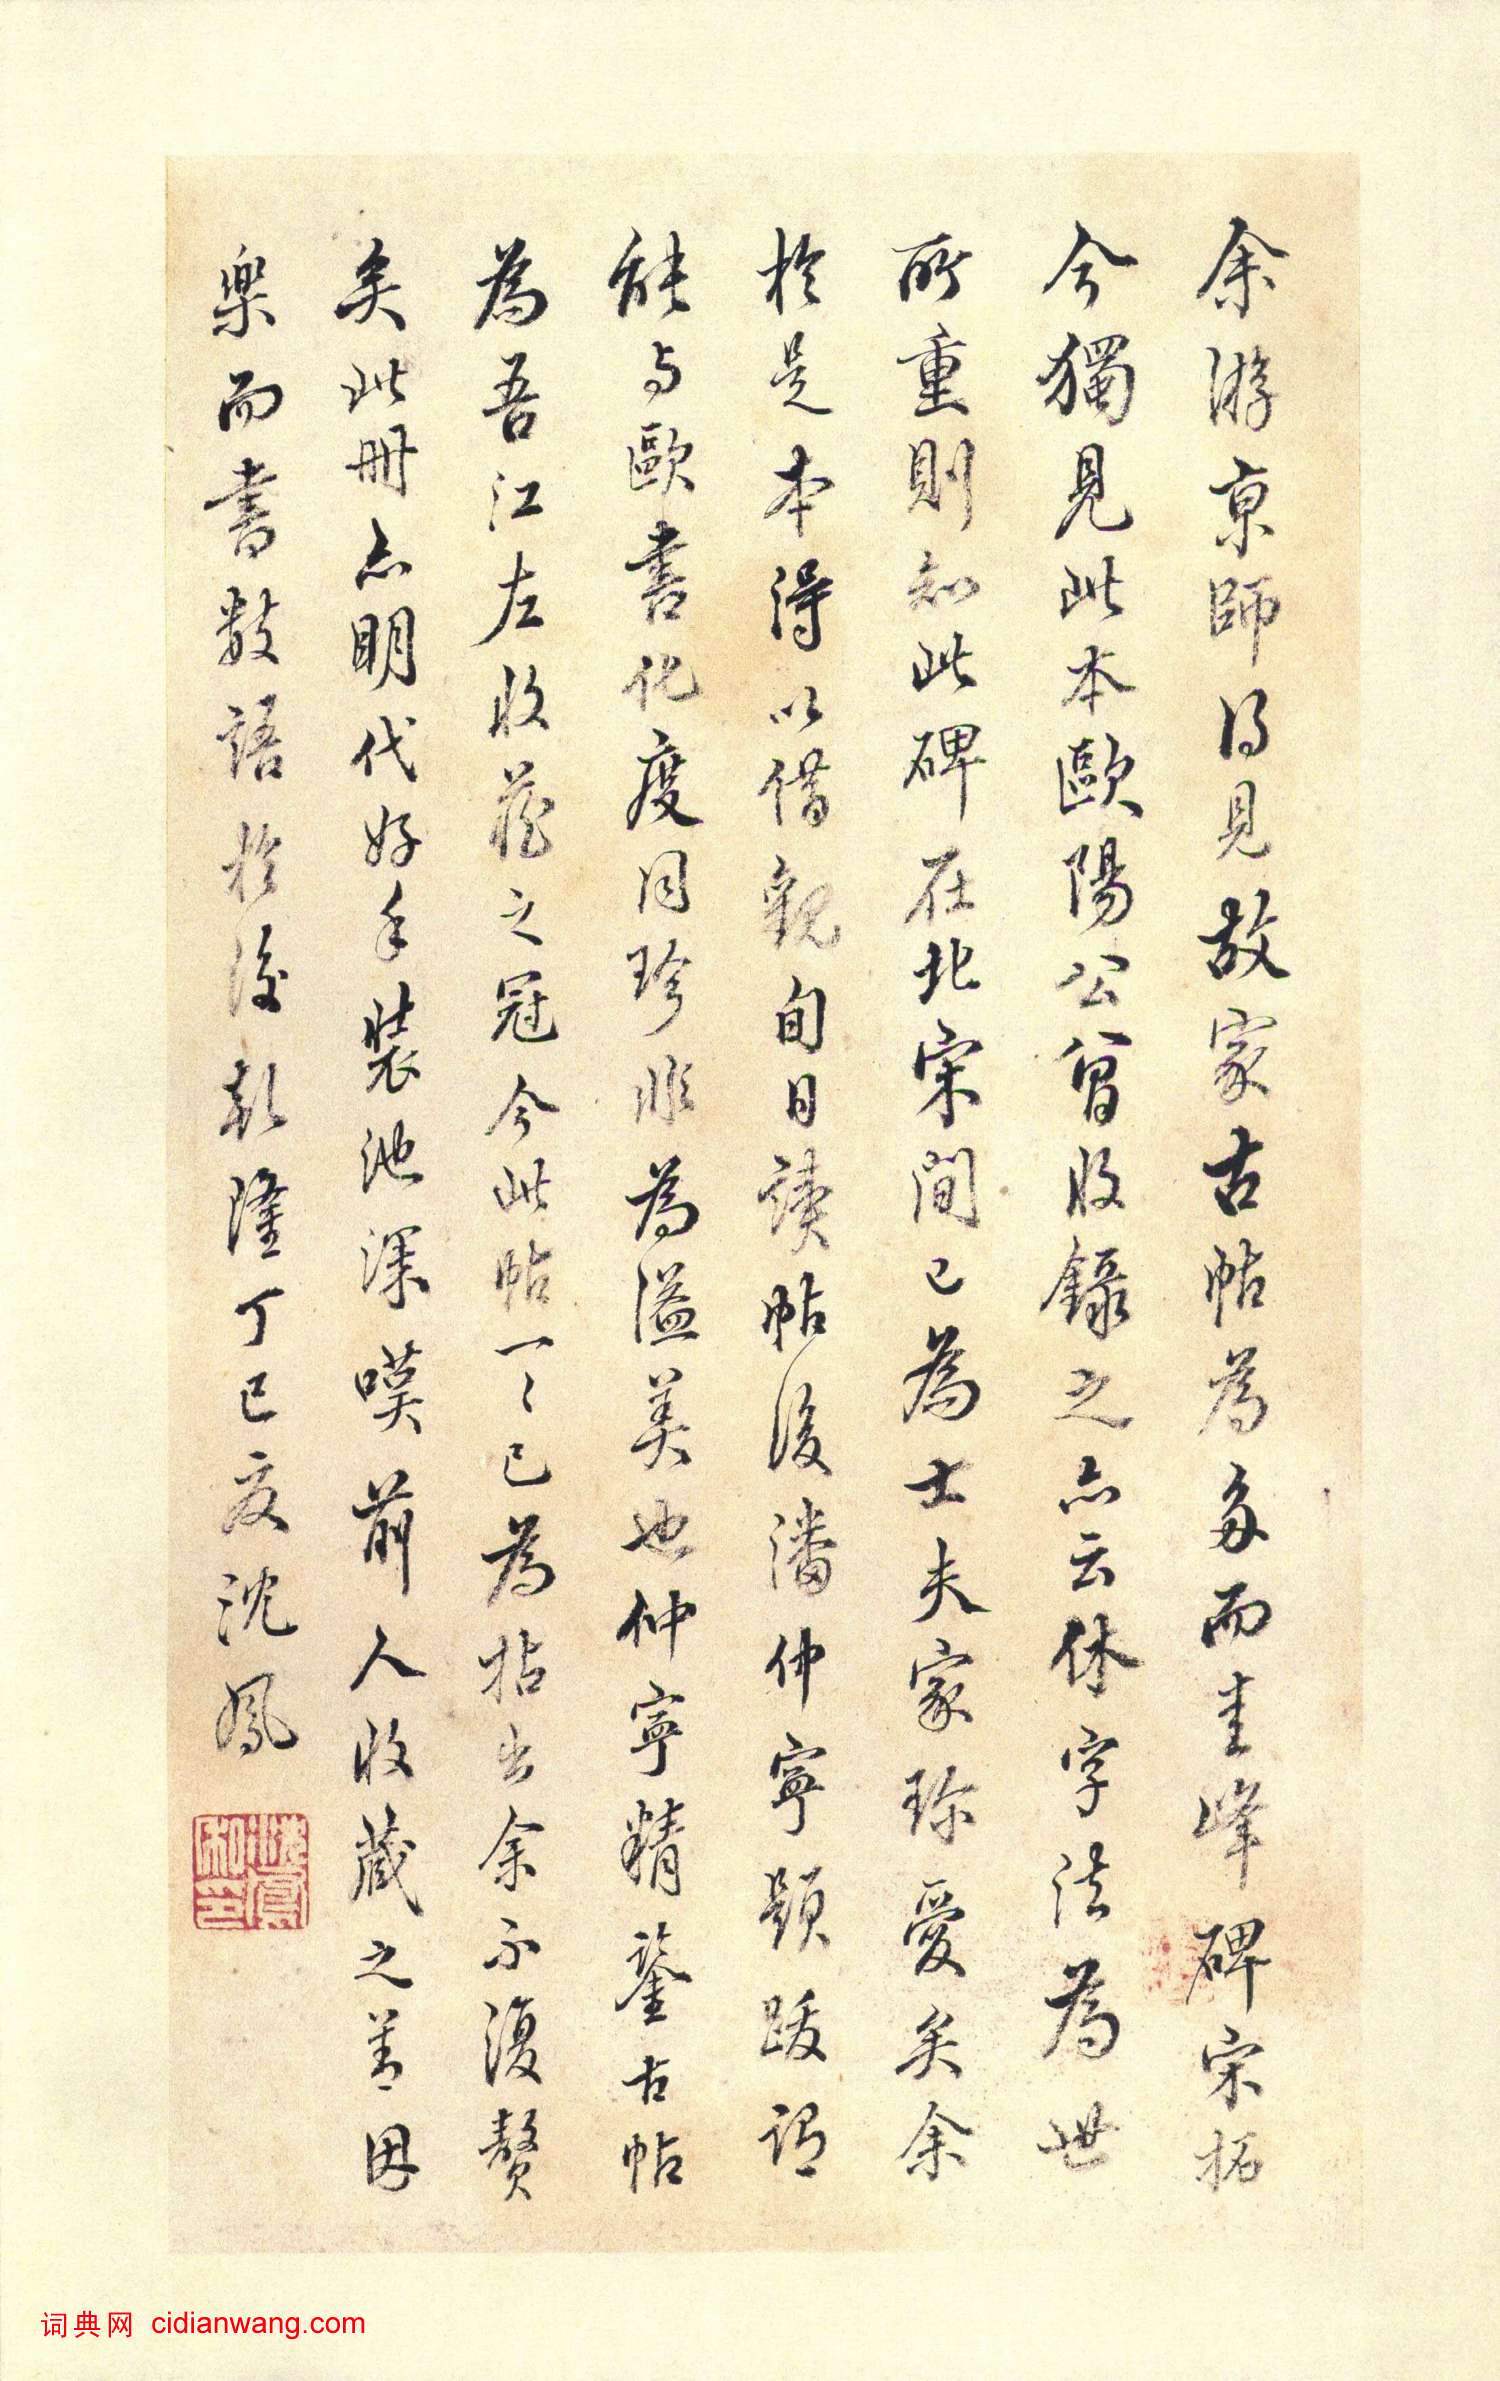 余游京師得見故家古帖為多而圭峰碑宋拓
今獨見此本歐陽公曾收錄之亦云休字法為世
所重則知此碑在北宋間已為士夫家珍愛矣余
於是本得以借觀旬日讀帖後潘仲寧題跋謂
能与歐書化度同珍非為溢美也仲寧精鑒古帖
為吾江左收藏之冠今此帖一〻已為拈出余不復贅
矣此冊亦明代好手裝池深嘆前人收藏之善因
樂而書數語於後乾隆丁巳夏沈鳳
词典网 cidianwang.com